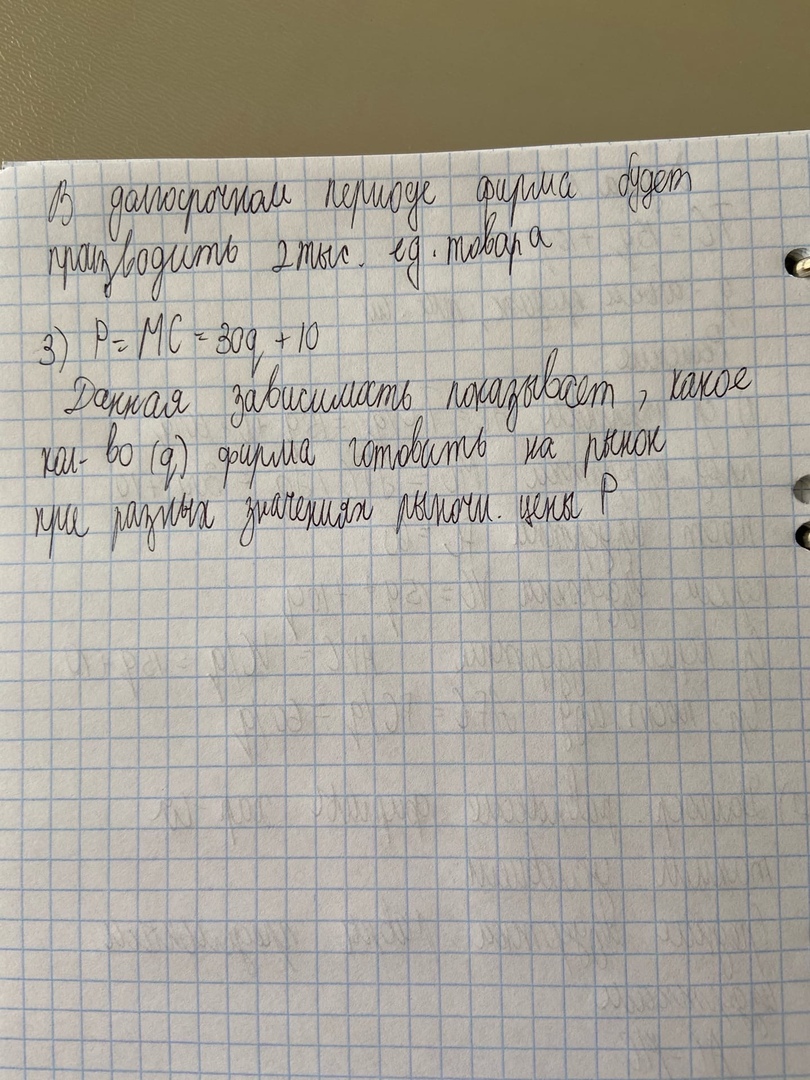 В долгосрочном периоде фирма будет
производить 2 тыс. ед. товара
3) P = MC = 30q + 10
Данная зависимость показывает, какое
кол-во (q) фирма готовить на рынок
при разных значениях рыночн. цены P